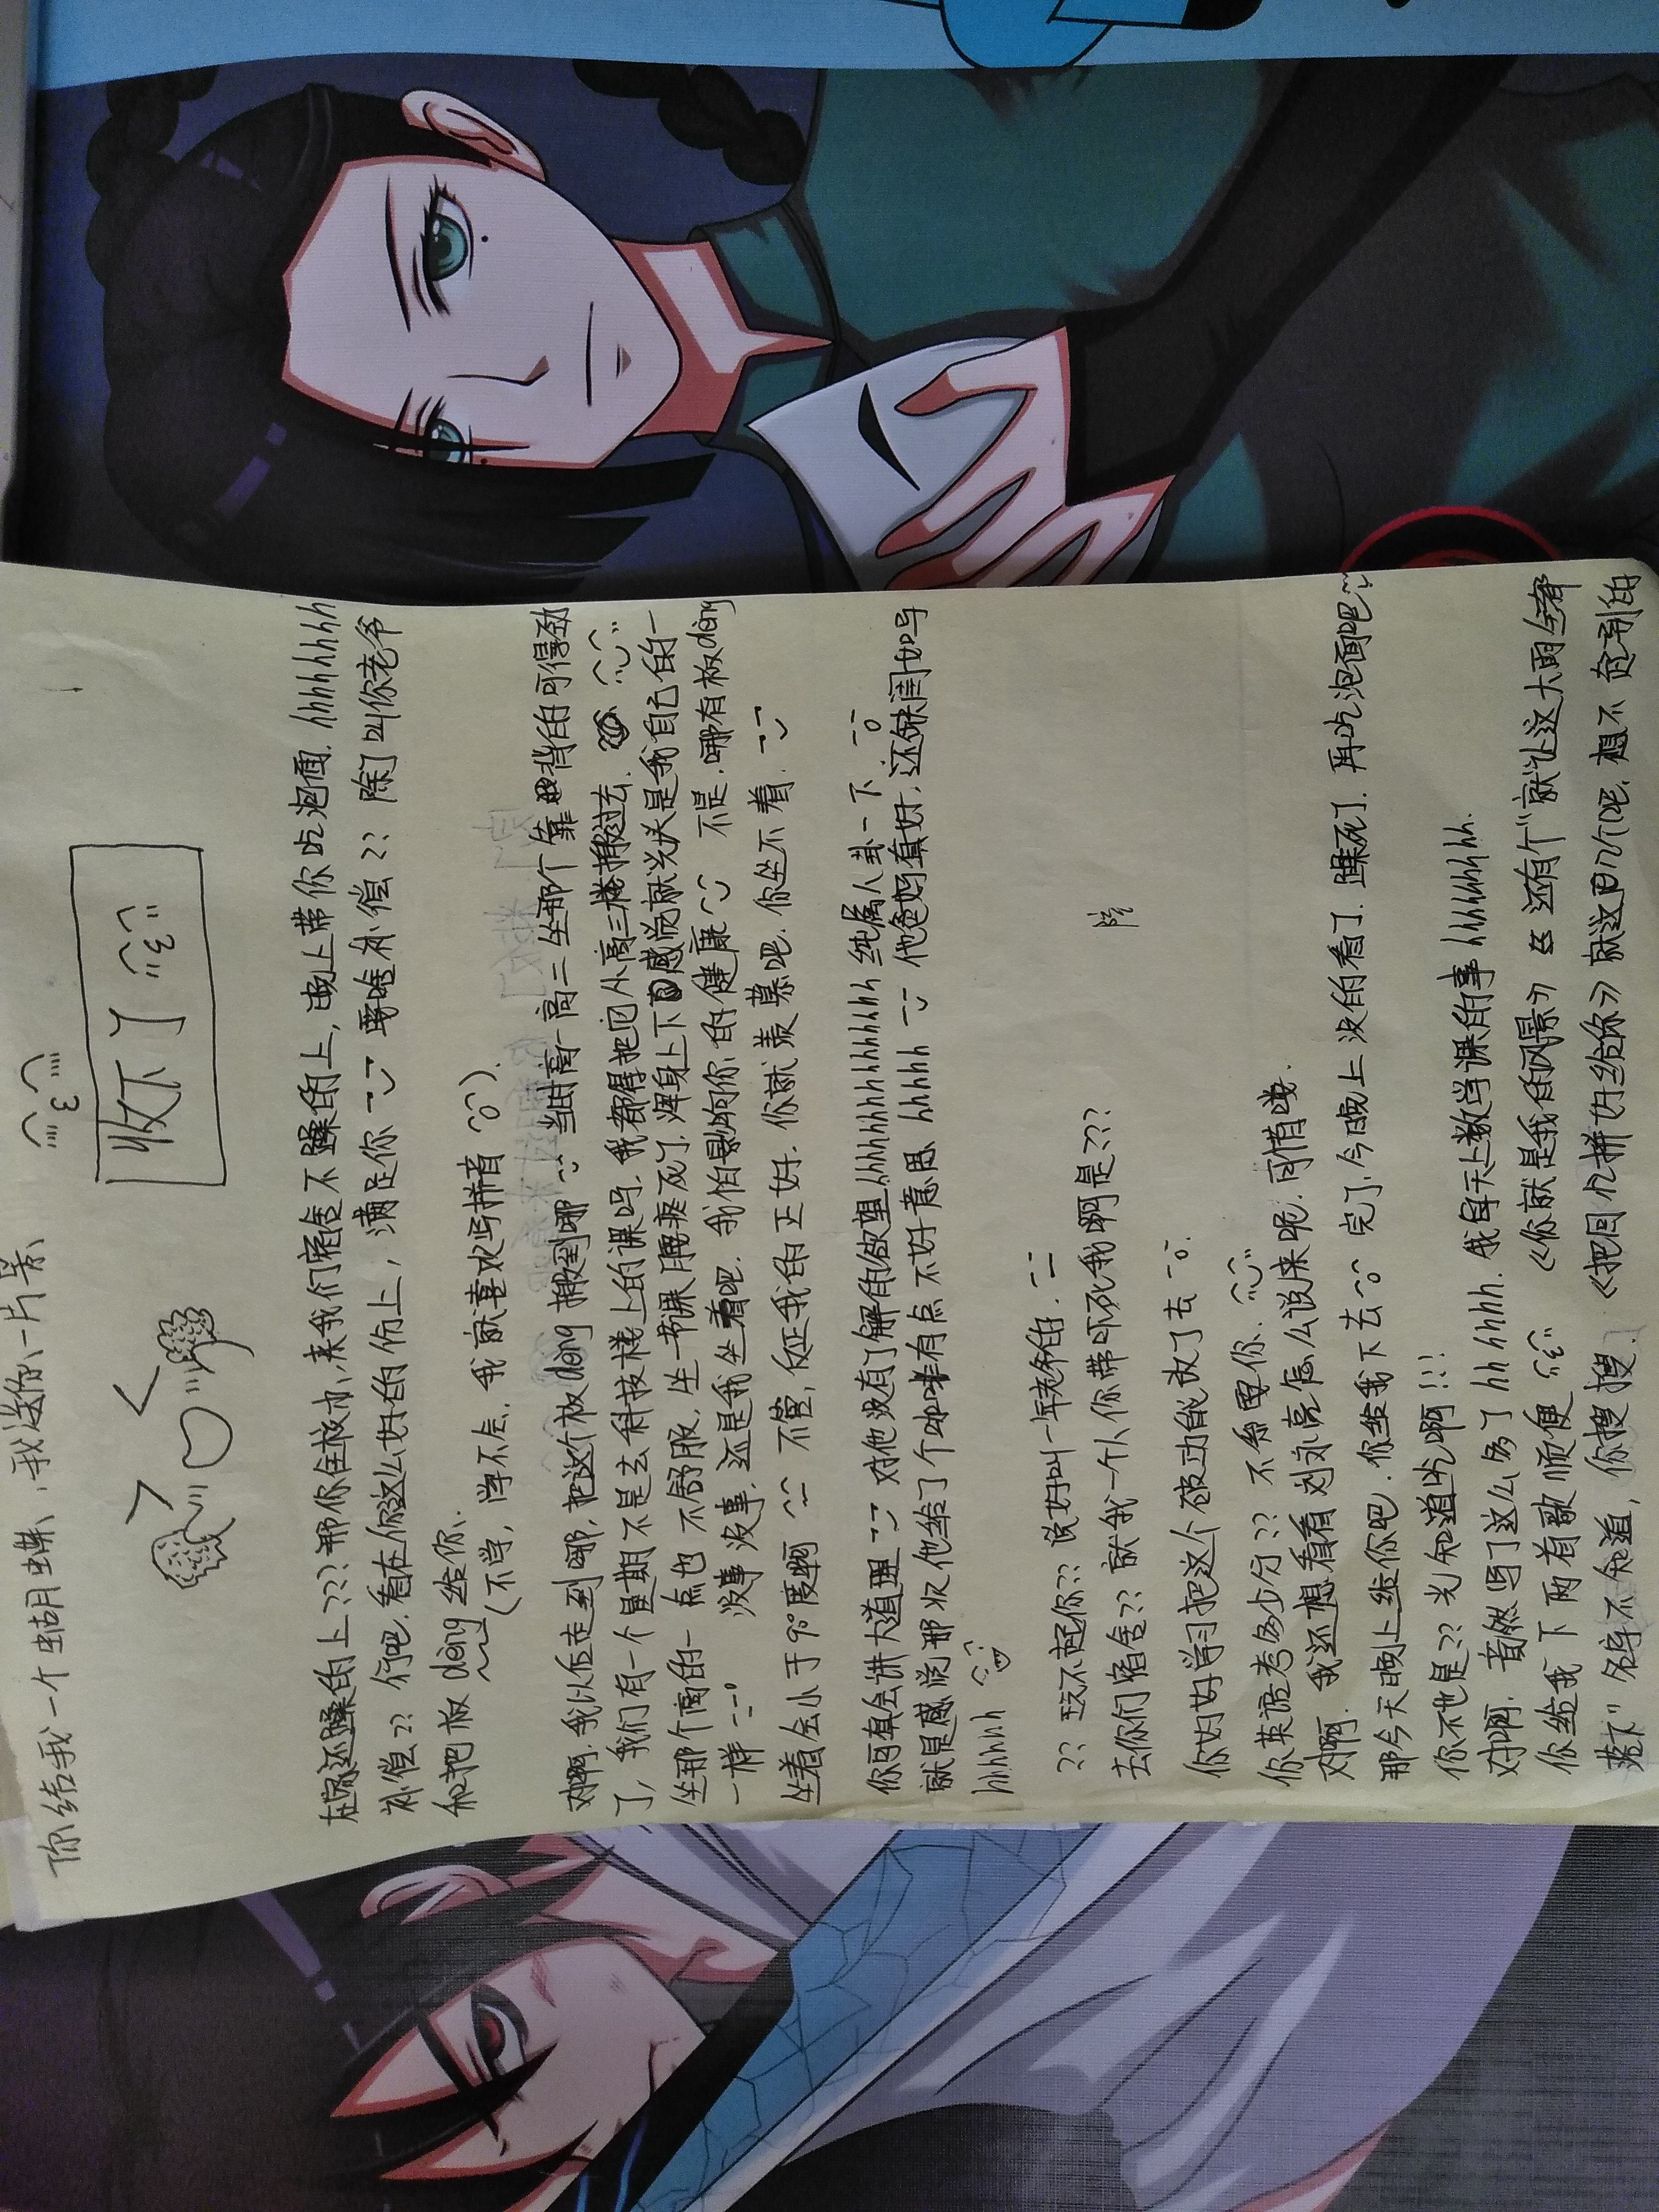 你给我一个蝴蝶,我送你一片景
收下了
在家还躁的上???那你住校办,来我们宿舍不躁的上,晚上带你吃泡面.hhhhhhhh
补偿??行吧.看在你这么好的份上,满足你 要啥补偿??除了叫你老爷
和把板dèng给你.
(不学,学不会.我就喜欢写拼音 ).
对啊.我以后走到哪,把这个板dèng搬到哪 当时高一高二坐那个靠背的可得劲
了,我们有一个星期不是去科技楼上的课吗.我都得把它从高三楼搬过去.
坐那个高的一点也不舒服.坐一节课腰疼死了.浑身上下感觉就光头是我自己的一
一样 没事没事.还是我坐着吧.我怕影响你的健康 不是.哪有板dèng
坐着会小于90°度啊 不管,反正我的正好.你就羡慕吧.你坐不着.
你可真会讲大道理 对他没有了解的欲望hhhhhhhhhhhhhh纯属八卦一下.
就是感觉那次他给了个咖啡有点不好意思hhhhh 他爸妈真好.还缺闺女吗
hhhhhh
??玩不起你??说好叫一年老爷的.
去你们宿舍??就我一个人你带吓死我啊是???
你好好学习把这个破功能改了去
你英语考多少分??不系要你.
对啊.我还想看看刘永亮怎么说来呢.可惜喽.
那今天晚上给你吧.你给我下去 完了,今晚上没的看了.躁死了.再吃泡面吧
你不也是??光知道吃啊!!!
对啊.竟然写了这么多了hhhhhh.我每天上数学课的事hhhhhhhh.
你给我下两首歌顺便 《你就是我的风景》 还有个"就让这大雨全都
落下"名字不知道,你搜搜.《把回忆拼好给你》就这几个吧.想不起别的